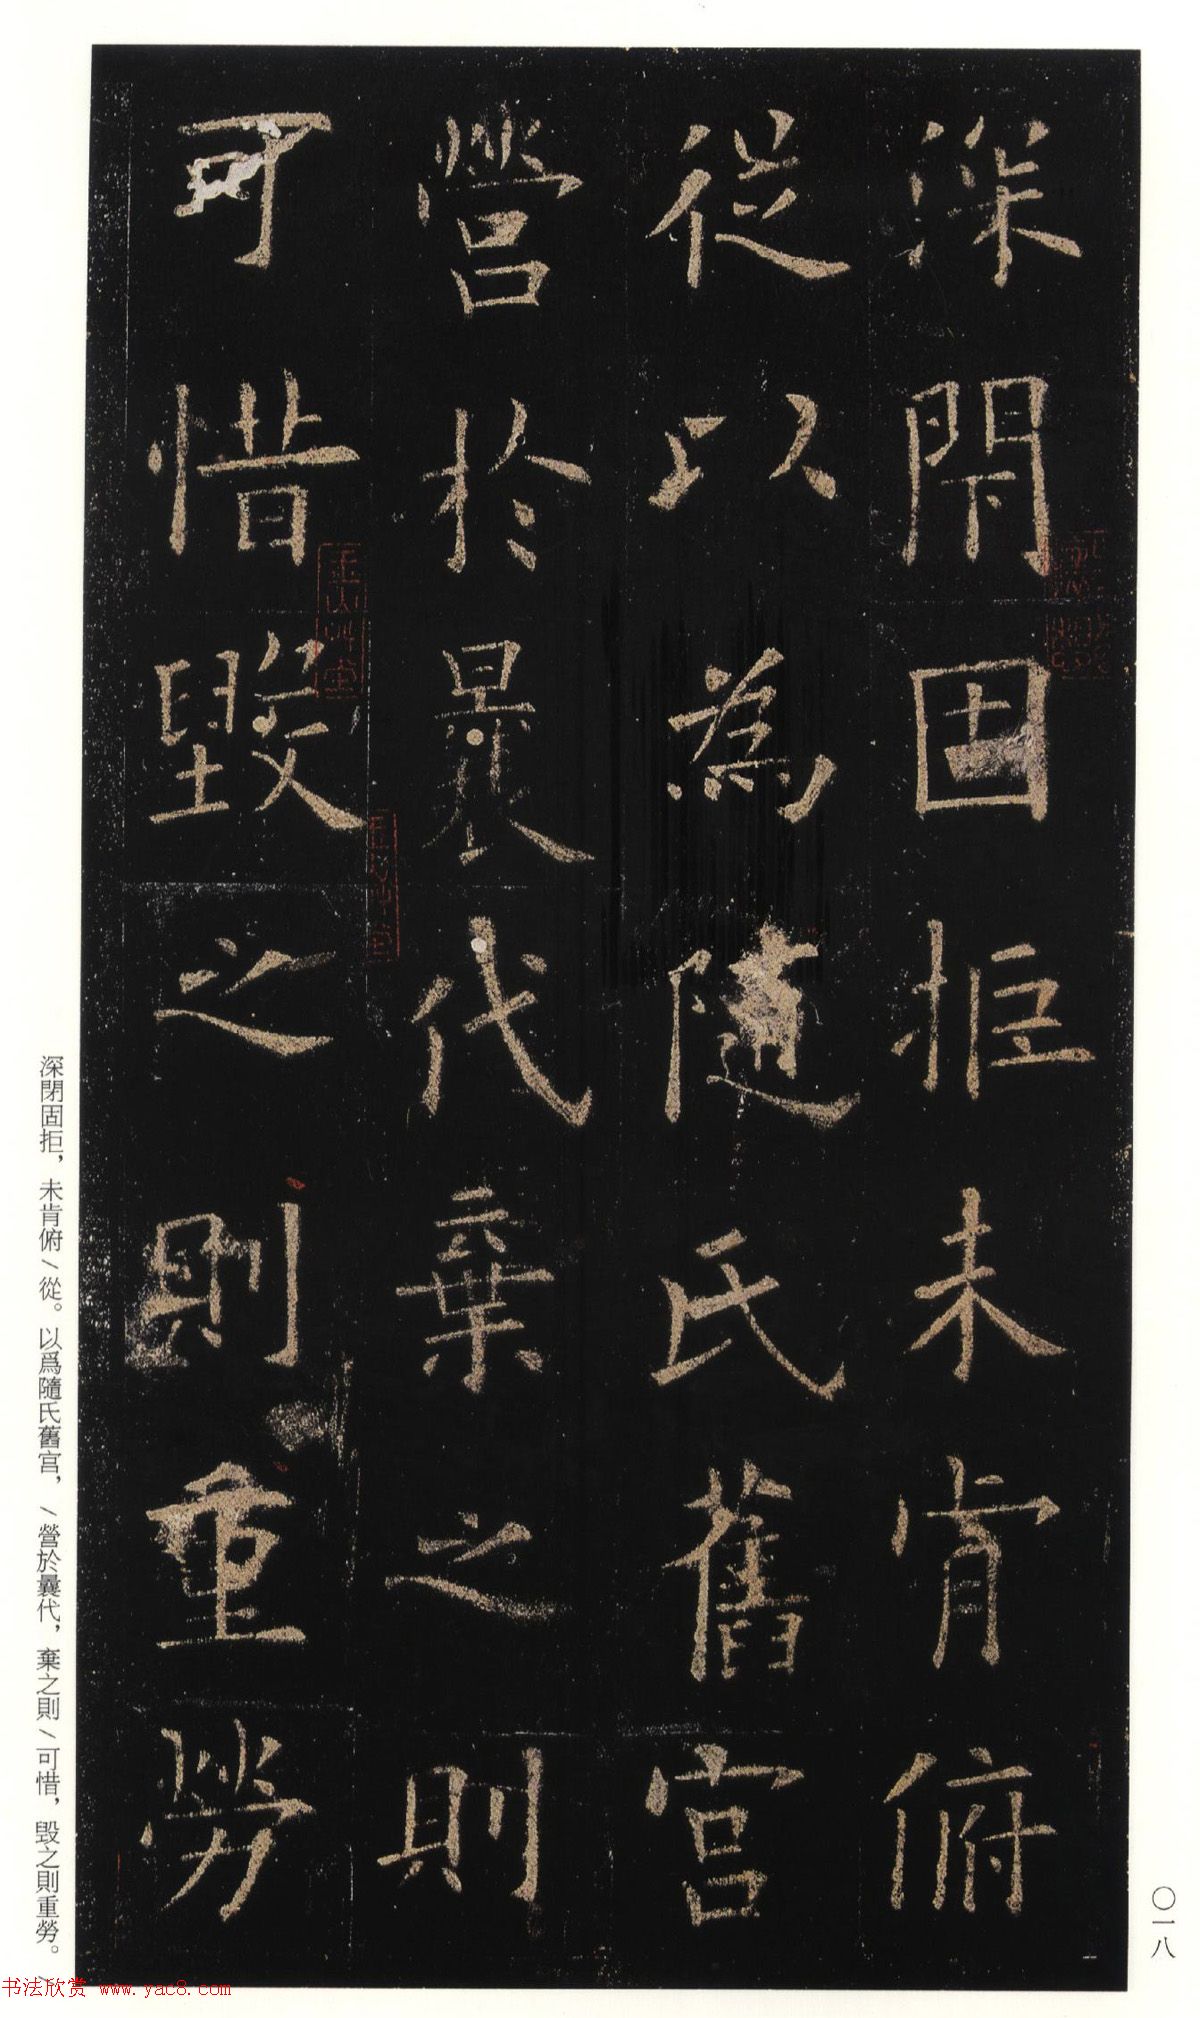 深閇固拒未肯俯
從以為隨氏舊宫
營於曩代棄之則
可惜毀之則重勞
深閉固拒，未肯俯\從。以爲隨氏舊宫，\營於曩代，棄之則\可惜，毀之則重勞。\
〇一八
书法欣赏 www.yac8.com